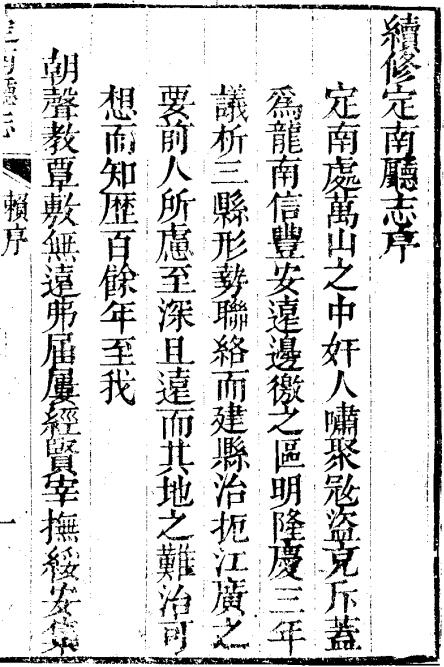 續修定南廳志序
定南處萬山之中奸人嘯聚㓂盜充斥蓋
爲龍南信豐安遠邊徼之區明隆慶三年
議析三縣形勢聯絡而建縣治扼江廣之
要前人所慮至深且遠而其地之難治可
想而知歷百餘年至我
朝聲教覃敷無遠弗届屢經賢宰撫綏安集
定南廳志
賴序
一